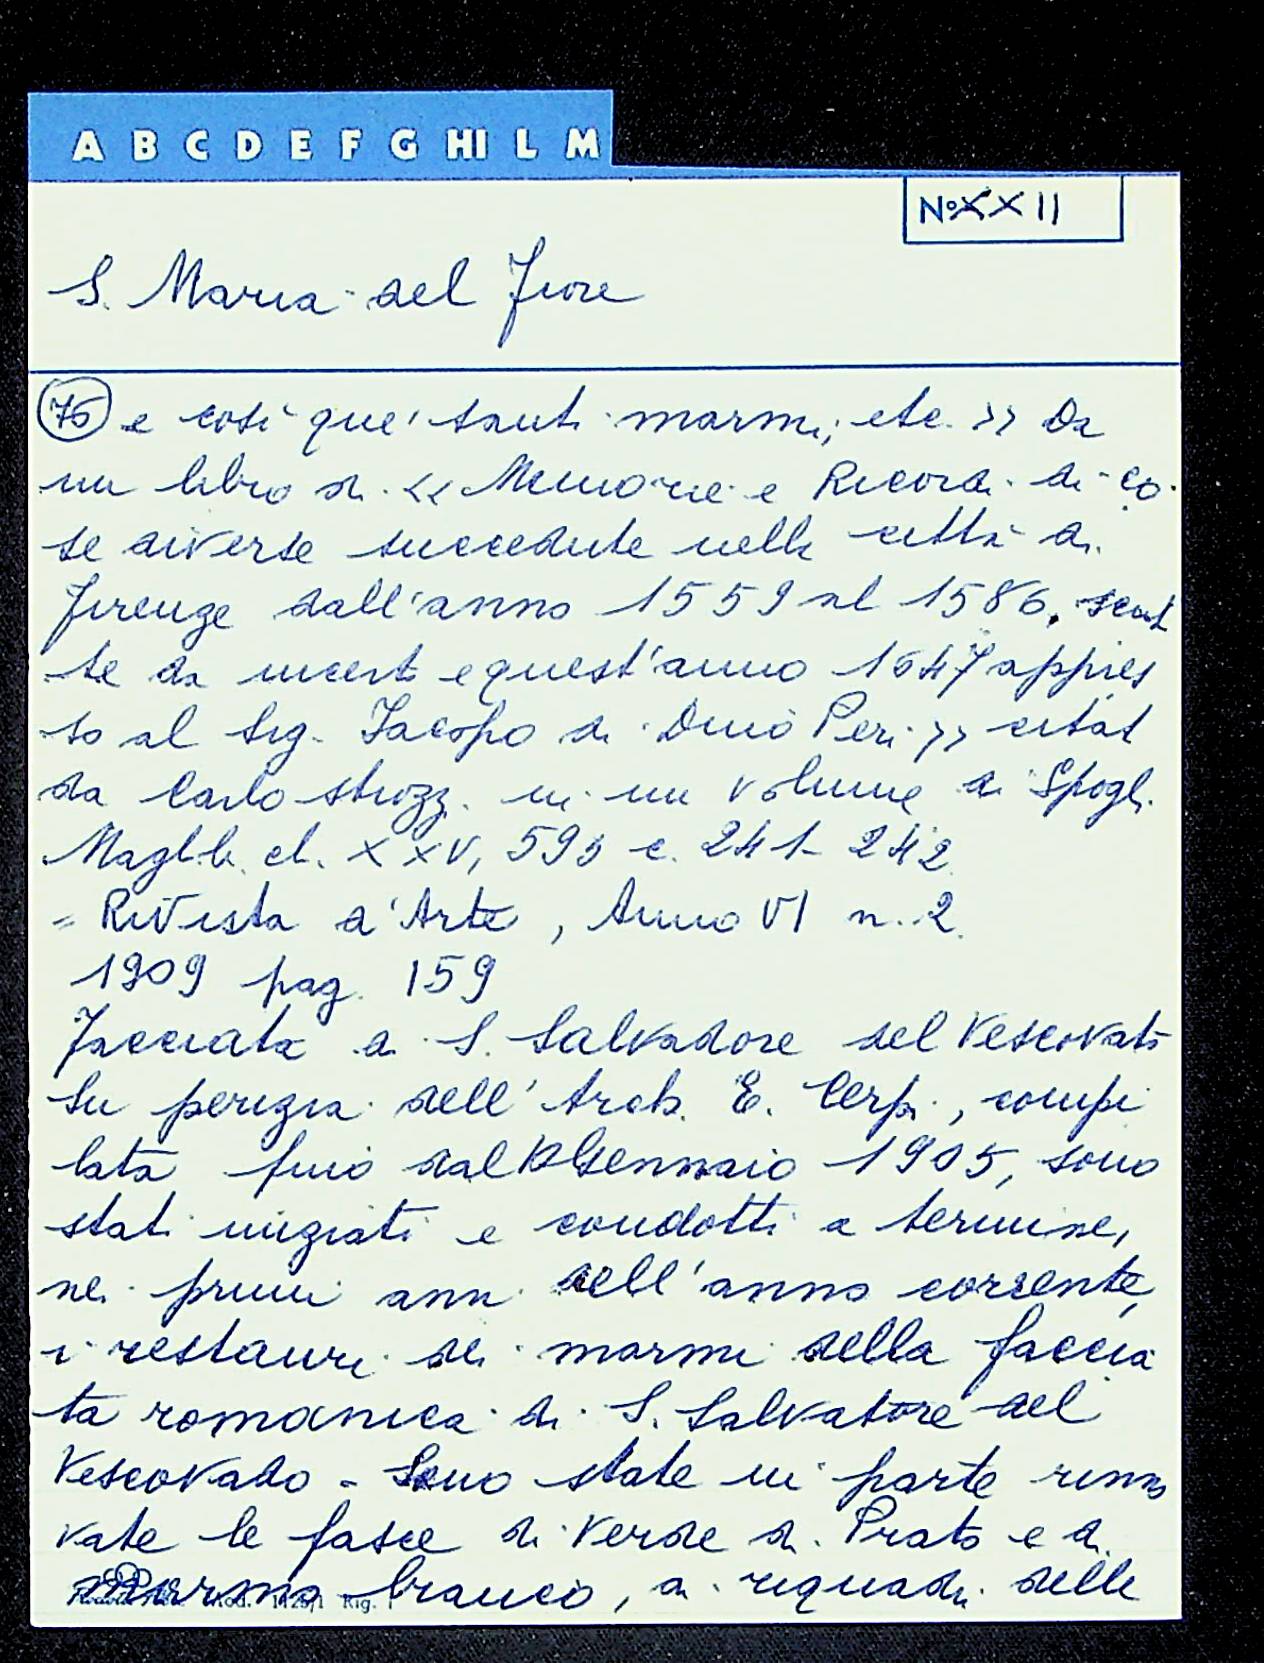 A B C D E F G HI L M
No XXII
S. Maria del Fiore
76 e così que' santi marmi; etc. >> Da
un libro di << Memorie e Ricordi di co-
se diverse succedute nella città di
Firenze dall'anno 1559 al 1586, scrit
te da incerto e quest'anno 1647 appres
so al Sig. Jacopo di Dino Peri >> citat
da Carlo Strozzi in un volume di Spogli.
Maglb. cl. XXV, 595 c. 241- 242
= Rivista d'Arte, Anno VI n. 2.
1909 pag. 159
Facciata di S. Salvadore del Vescovato
Su perizia dell'Arch. E. Cerpi, compi
lata fino dal Gennaio 1905, sono
stati iniziati e condotti a termine,
nei primi anni dell'anno corrente,
i restauri dei marmi della faccia
ta romanica di S. Salvatore del
Vescovado - Sono state in parte rinno
vate le fasce di Verde di Prato e di
marmo bianco, i riquadri delle
Mod. Rig.